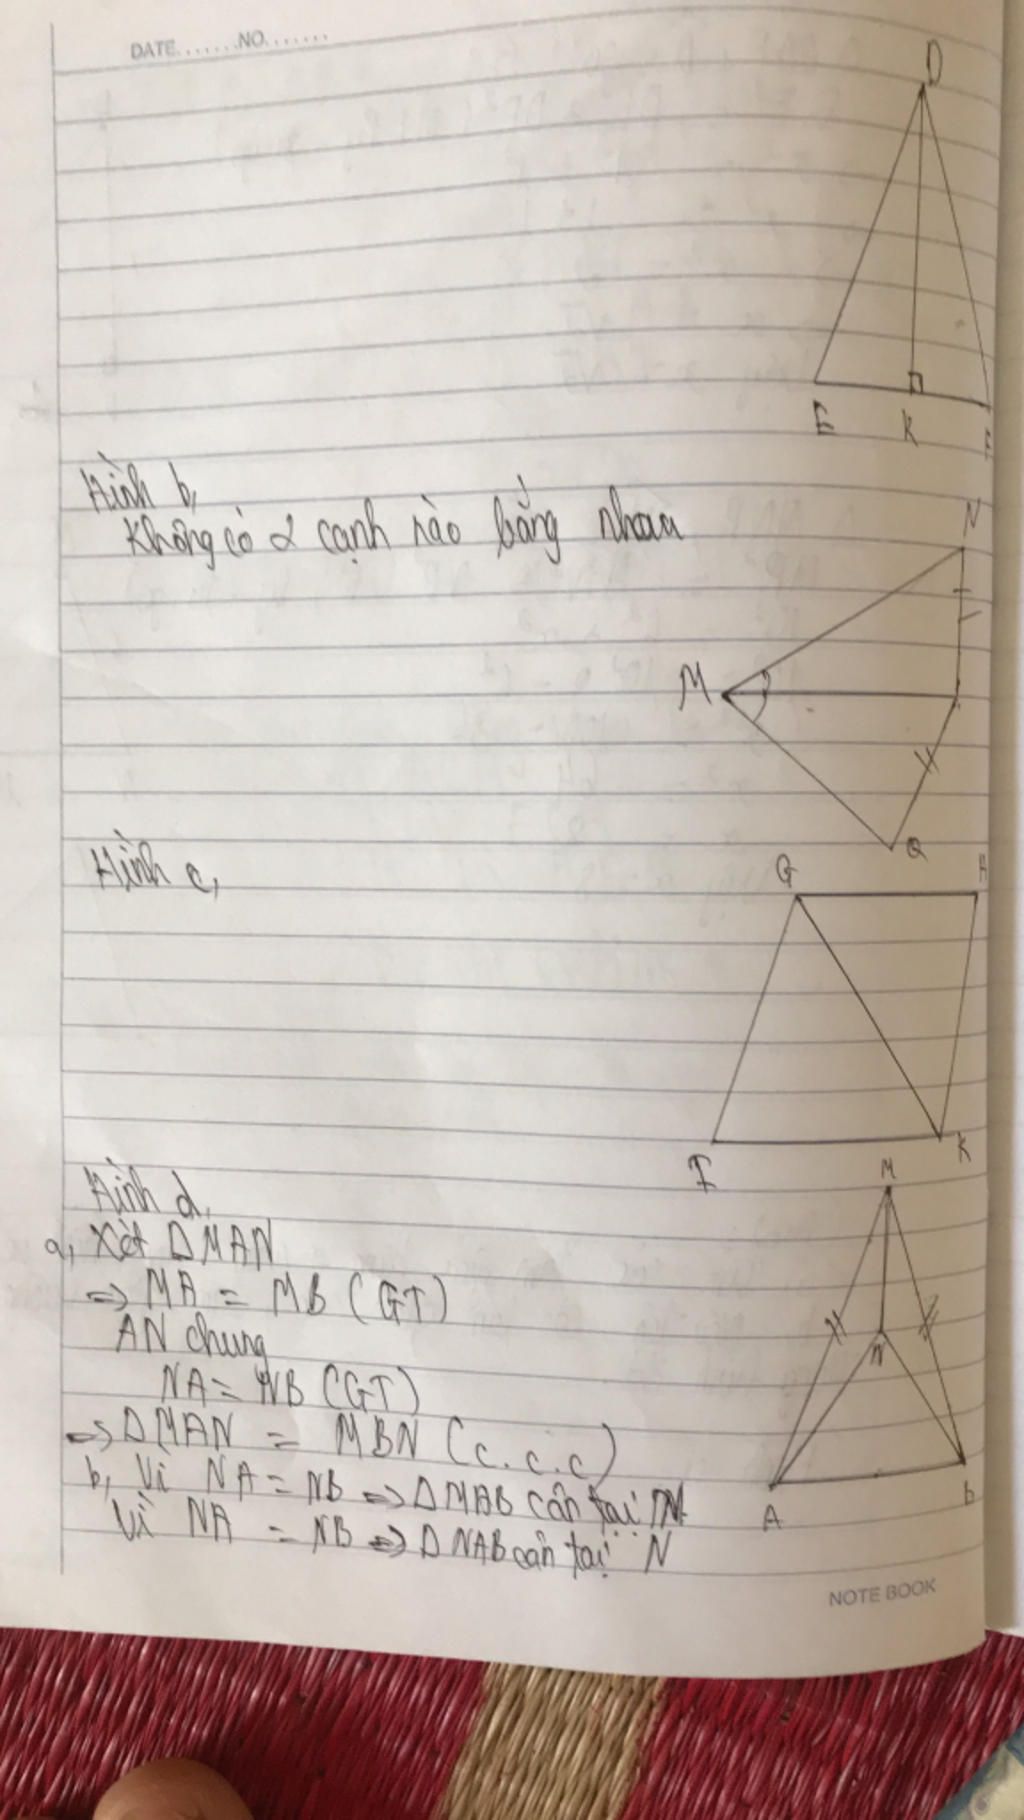 DATE.......NO.......
D
E K F
Hình b,
Không có 2 cạnh nào bằng nhau
N
M
Q
Hình c,
G H
I K
Hình d,
a, Xét ΔMAN
=> MA = MB (GT)
AN chung
NA = NB (GT)
=> ΔMAN = MBN (c.c.c)
b, Vì NA = NB => ΔMAB cân tại M
Vì NA = NB => ΔNAB cân tại N
M
N
A b
NOTE BOOK